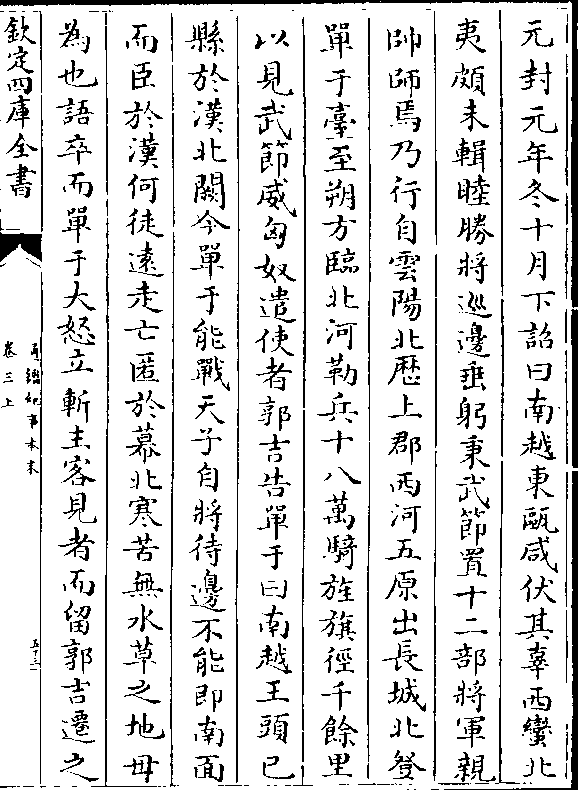 元封元年冬十月下詔曰南越東甌咸伏其辜西蠻北
夷頗未輯睦勝將巡邊垂躬秉武節置十二部將軍親
帥師焉乃行自雲陽北歷上郡西河五原出長城北登
單于臺至朔方臨北河勒兵十八萬騎旌旗徑千餘里
以見武節威匈奴遣使者郭吉告單于曰南越王頭已
縣於漢北闕今單于能戰天子自將待邊不能即南面
而臣於漢何徒遠走亡匿於幕北寒苦無水草之地毋
為也語卒而單于大怒立斬主客見者而留郭吉遷之
欽定四庫全書
通鑑紀事本末
卷三上
五十三